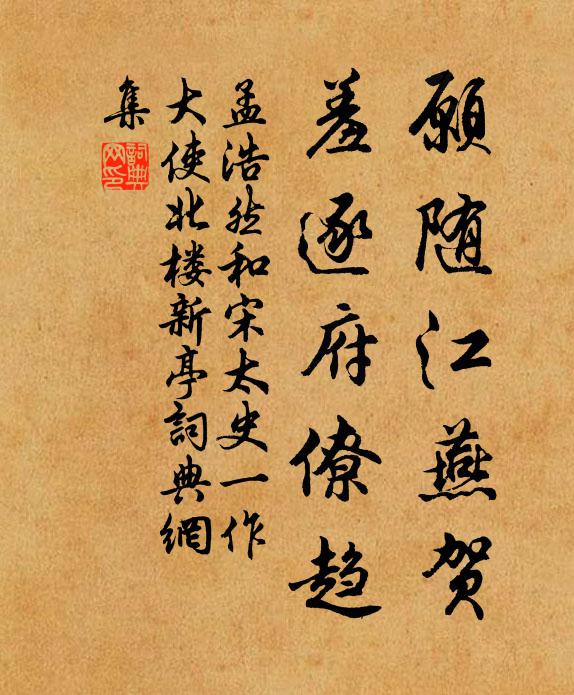 願随江燕贺
羞逐府僚趋
孟浩然和宋太史一作
大使北楼新亭詞典網
集
詞典網印